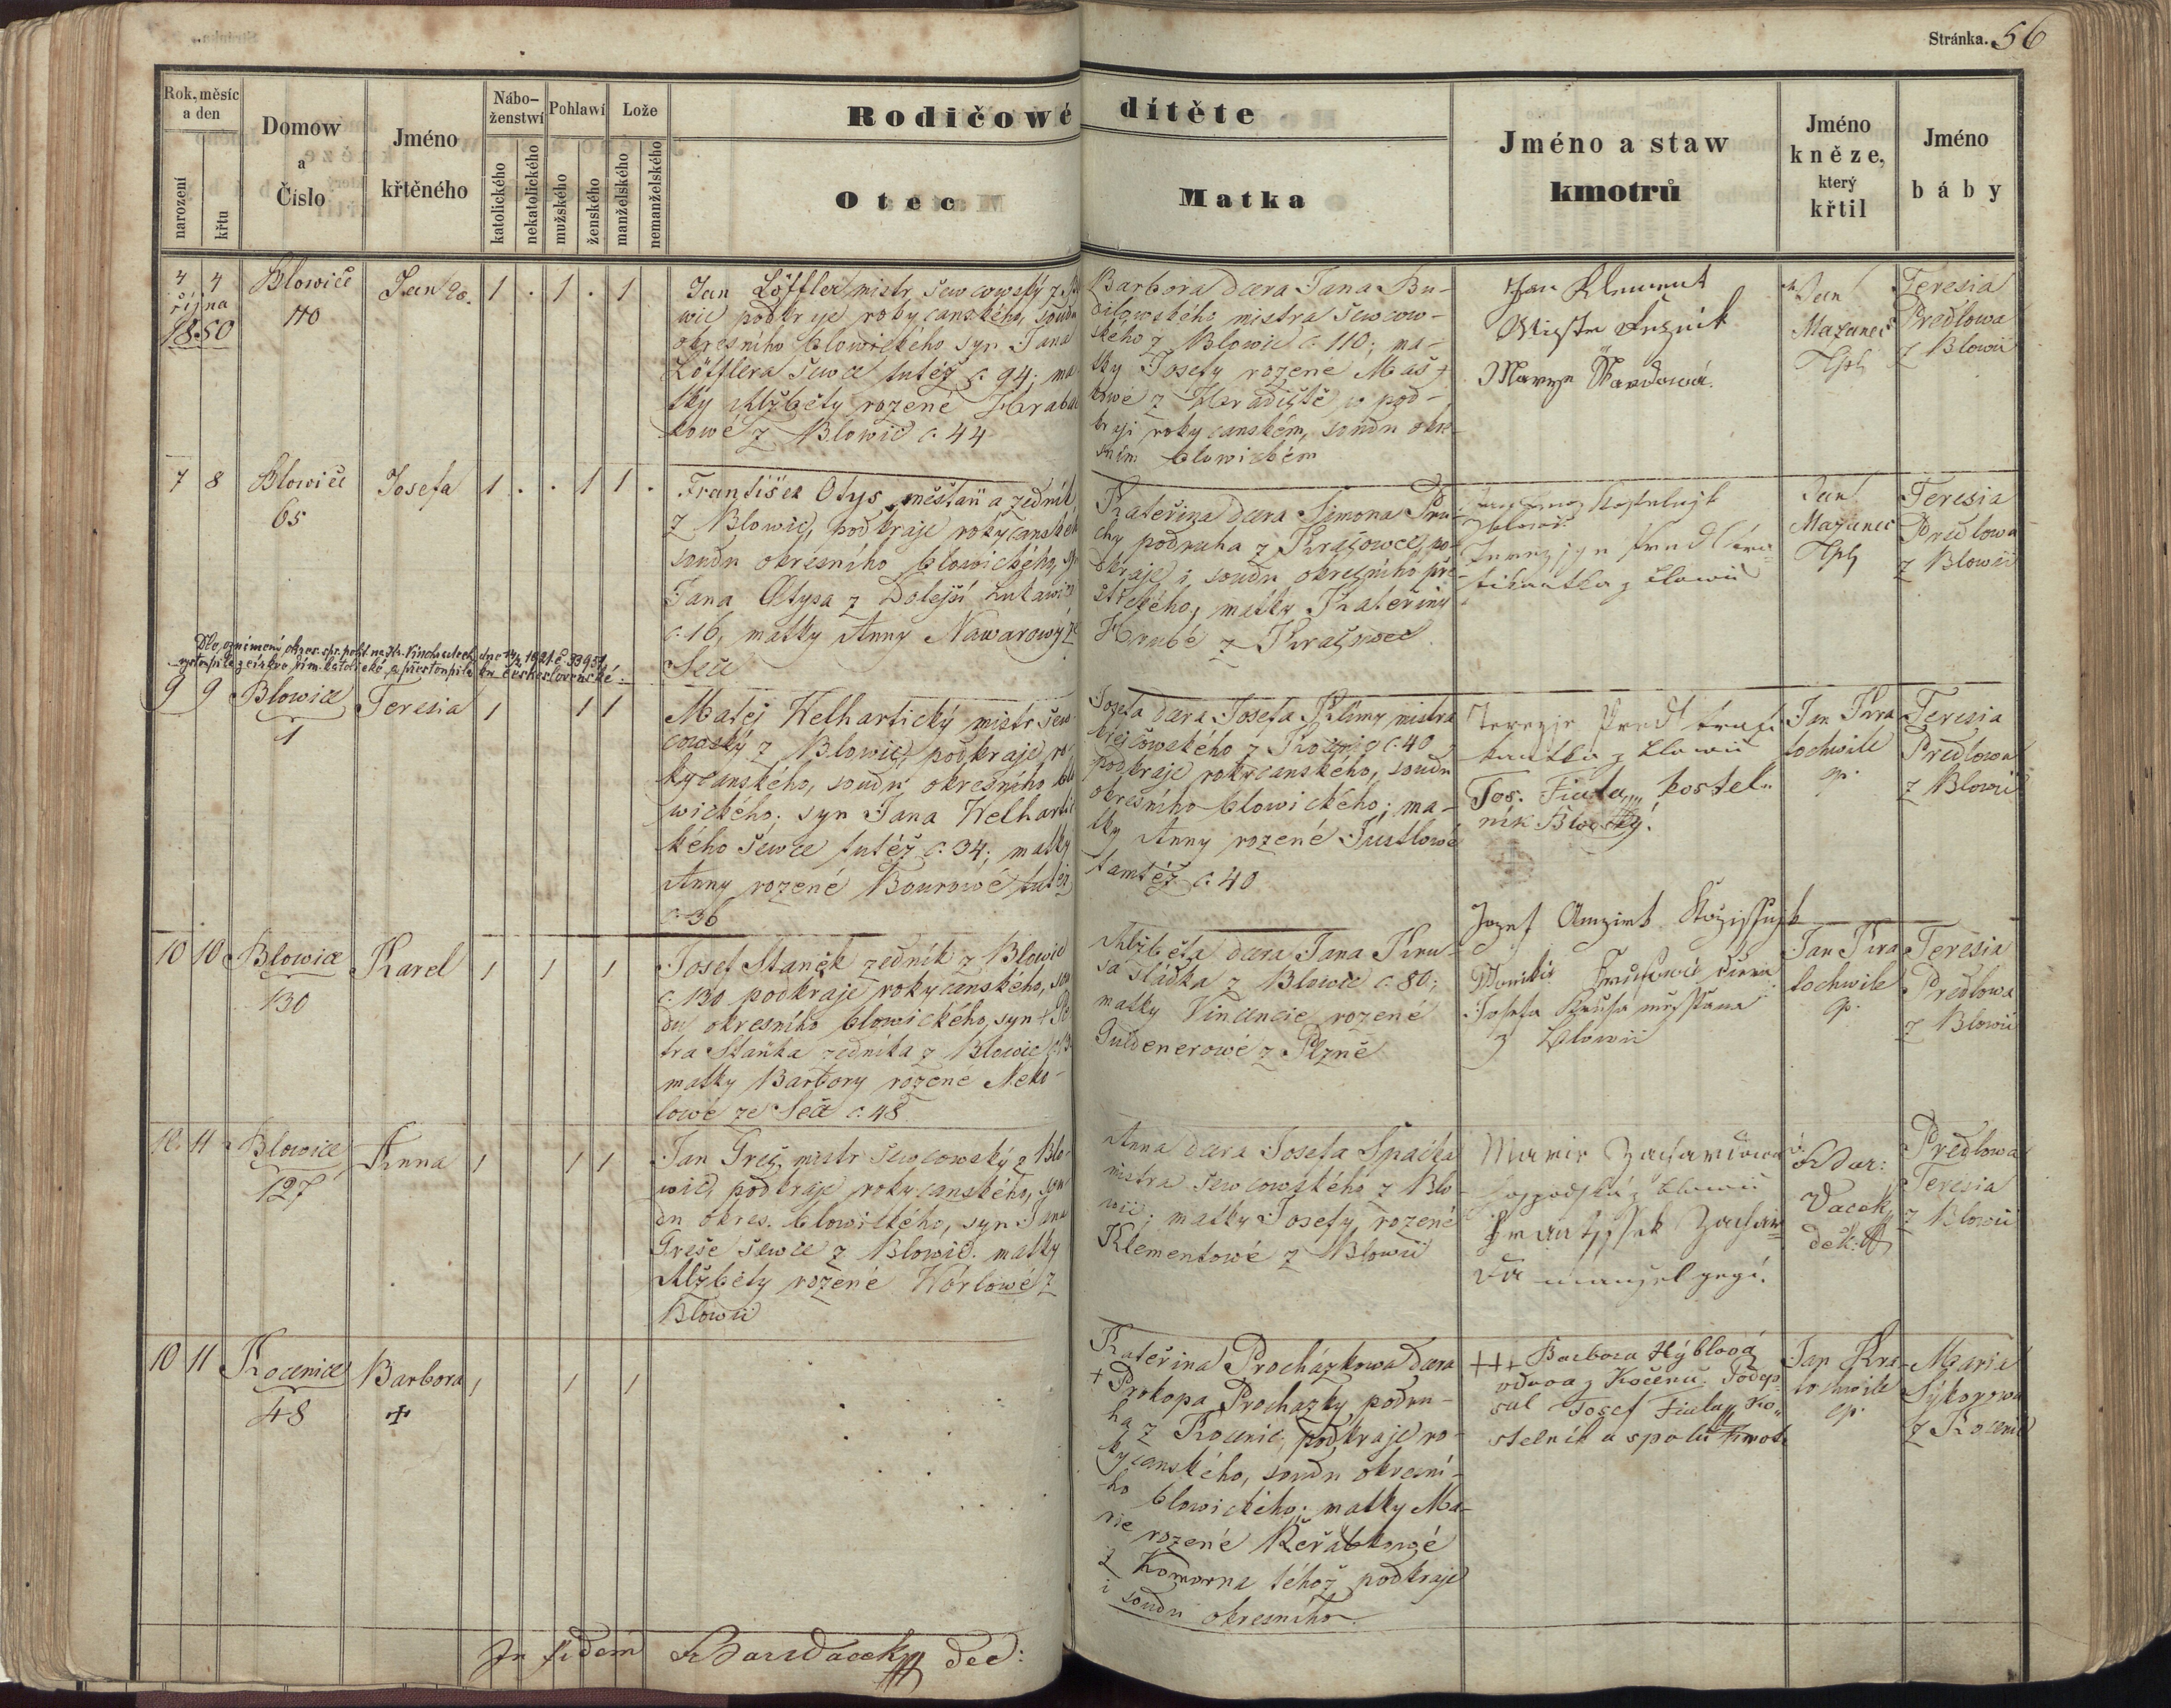 Stránka. 56
Rok, měsíc a den
narození
křtu
Domow a Číslo
Jméno křtěného
Nábo-ženstwí
katolického
nekatolického
Pohlawí
mužského
ženského
Lože
manželského
nemanželského
Rodičowé dítěte
Otec
Matka
Jméno a staw kmotrů
Jméno kněze, který křtil
Jméno báby
4 4
října
1850
Blowice
110
Jan
1 . 1 . 1
Jan Löffler mistr šewcowský z Blo
wic podkraje rokycanského, soudu
okresního blowického syn Jana
Löfflera šewce tutéž č. 94; ma
tky Alžběty rozené Hrabá
kowé z Blowic č. 44
Barbora dcera Jana Bu-
dilowského mistra šewcow-
ského z Blowic č. 110; ma-
tky Josefy rozené Maš
kowé z Hradiště w pod-
kraji rokycanském, soudu okre
sním blowickém
Jan Klement
Mistr
Marye
Jan
Mazanec
Teresia
Predlowa
z Blowic
7 8
Blowice
65
Josefa
1 . . 1 1 .
František Otys, měštan a zedník
z Blowic, podkraje rokycanského
soudu okresního blowického, syn
Jana Otysa z Dolejší Lukawice
č. 16, matky Anny Nawarowý ze
Seče
Kateřina dcera Simona Pru-
chy podruha z Krašowce, po
dkraje i soudu okresního pře-
štického, matky Kateřiny
Hrubé z Krašowce
z Blowic
Jan
Mazanec
Teresia
Predlowa
z Blowic
Dle oznámení okres. spr. polit. na Kr. Vinohradech dne 14/2 1921 č. 33951
vystoupila z církve řím. katolické a přestoupila ku československé.
9 9
Blowice
1
Teresia
1 1 1
Matěj Welhartický mistr šew
cowský z Blowic, podkraje ro-
kycanského, soudu okresního blo
wického; syn Jana Welhartic
kého šewce tutéž č. 34; matky
Anny rozené Bourowé tutéž
č. 36
Josefa dcera Josefa Klímy mistra
krejčowského z č. 40
podkraje rokycanského, soudu
okresního blowického; ma-
tky Anny rozené Justlowé
tamtéž č. 40
Terezie Predl
z Blowic
Jos. Fiala kostel-
ník Blowický.
Jan Kra
tochwile
Teresia
Predlowa
z Blowic
10 10
Blowice
130
Karel
1 1 1
Josef Staněk zedník z Blowic
č. 130 podkraje rokycanského, sou
du okresního blowického, syn † Pe
tra Staňka zedníka z Blowic
matky Barbory rozené Neko-
lowé ze Seče č. 48
Alžběta dcera Jana Kru-
sa sládka z Blowic č. 80;
matky Vincencie rozené
Guldenerowé z Plzně
Jozef
Josefa
z Blowic
Jan Kra
tochwile
Teresia
Predlowa
z Blowic
10. 11
Blowice
127
Anna
1 1 1
Jan Greš, mistr šewcowský z Blo-
wic, podkraje rokycanského, sou
du okres. blowického, syn Jana
Greše šewce z Blowic. matky
Alžběty rozené Körlowé z
Blowic
Anna dcera Josefa Spačka
mistra šewcowského z Blo
wic; matky Josefy rozené
Klementowé z Blowic
Marie
z Blowic
manžel gegí.
Vacek
děk.
Predlowa
Teresia
z Blowic
10 11
Kocenice
48
Barbora
+
1 1 1
Kateřina Procházkowa dcera
† Prokopa Procházky podru-
ha z Kocenic, podkraje ro-
kycanského, soudu okresní-
ho blowického; matky Ma-
rie rozené Keřábkowé
z Komorna téhož podkraje
i soudu okresního.
+++ Barbora Hýblová
vdova z Kočenic. Podep-
sal Josef Fiala ko-
stelník a spolu kmotr
Jan Kra
tochwile
Marie
Sýkorowa
z Kocenic
In fidem Vacek dec: